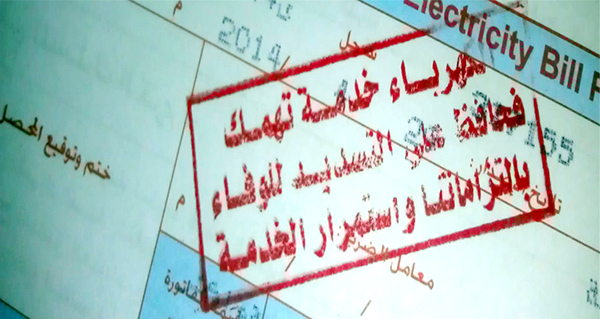 Electricity Bill
2014
سجل
م
كهرباء خدمة تهمك
فحافظ على التسديد للوفاء
بالتزاماتنا واستمرار الخدمة
155
ختم وتوقيع المحصل
م
معامل الضرب